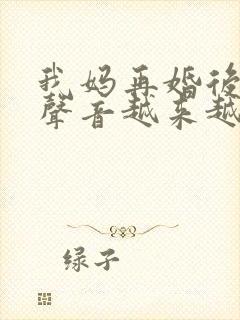 我妈再婚後
聲音越来越
绿子